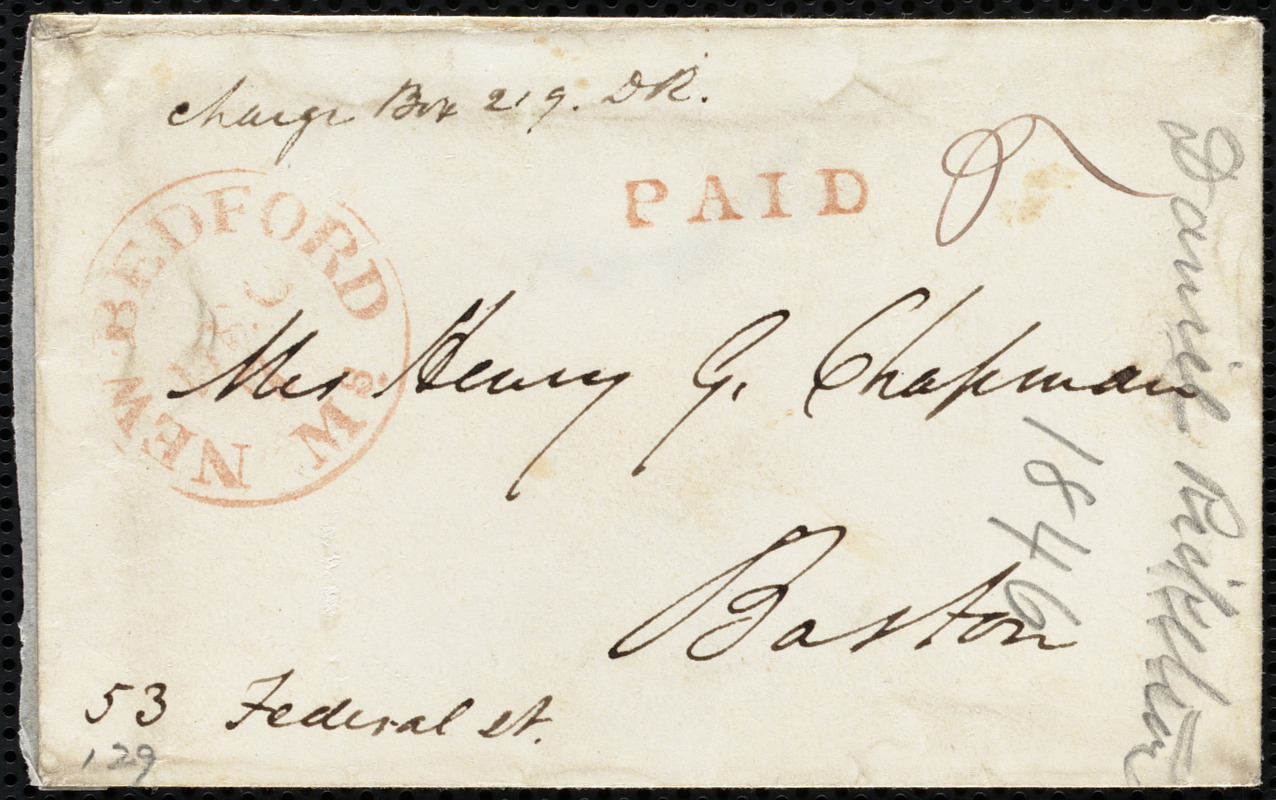 Charge Box 219. DR.
PAID
NEW BEDFORD Ms
Mrs Henry G. Chapman
Boston
53 Federal st.
129
Daniel Ricketson
1846